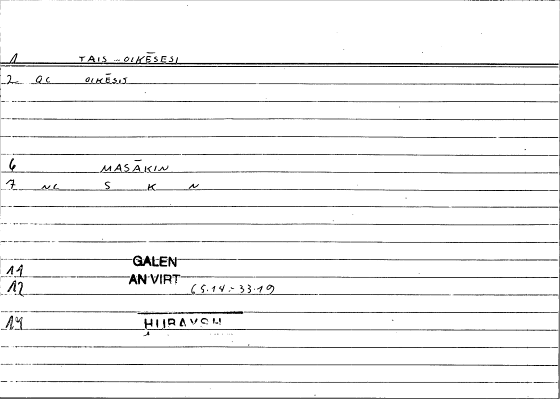 1 TAIS - OIKĒSESI
2 QC OIKĒSIS
6 MASĀKIN
7 NC S K N
11 GALEN
12 AN VIRT (5.14.-33.19)
14 HURAYSH